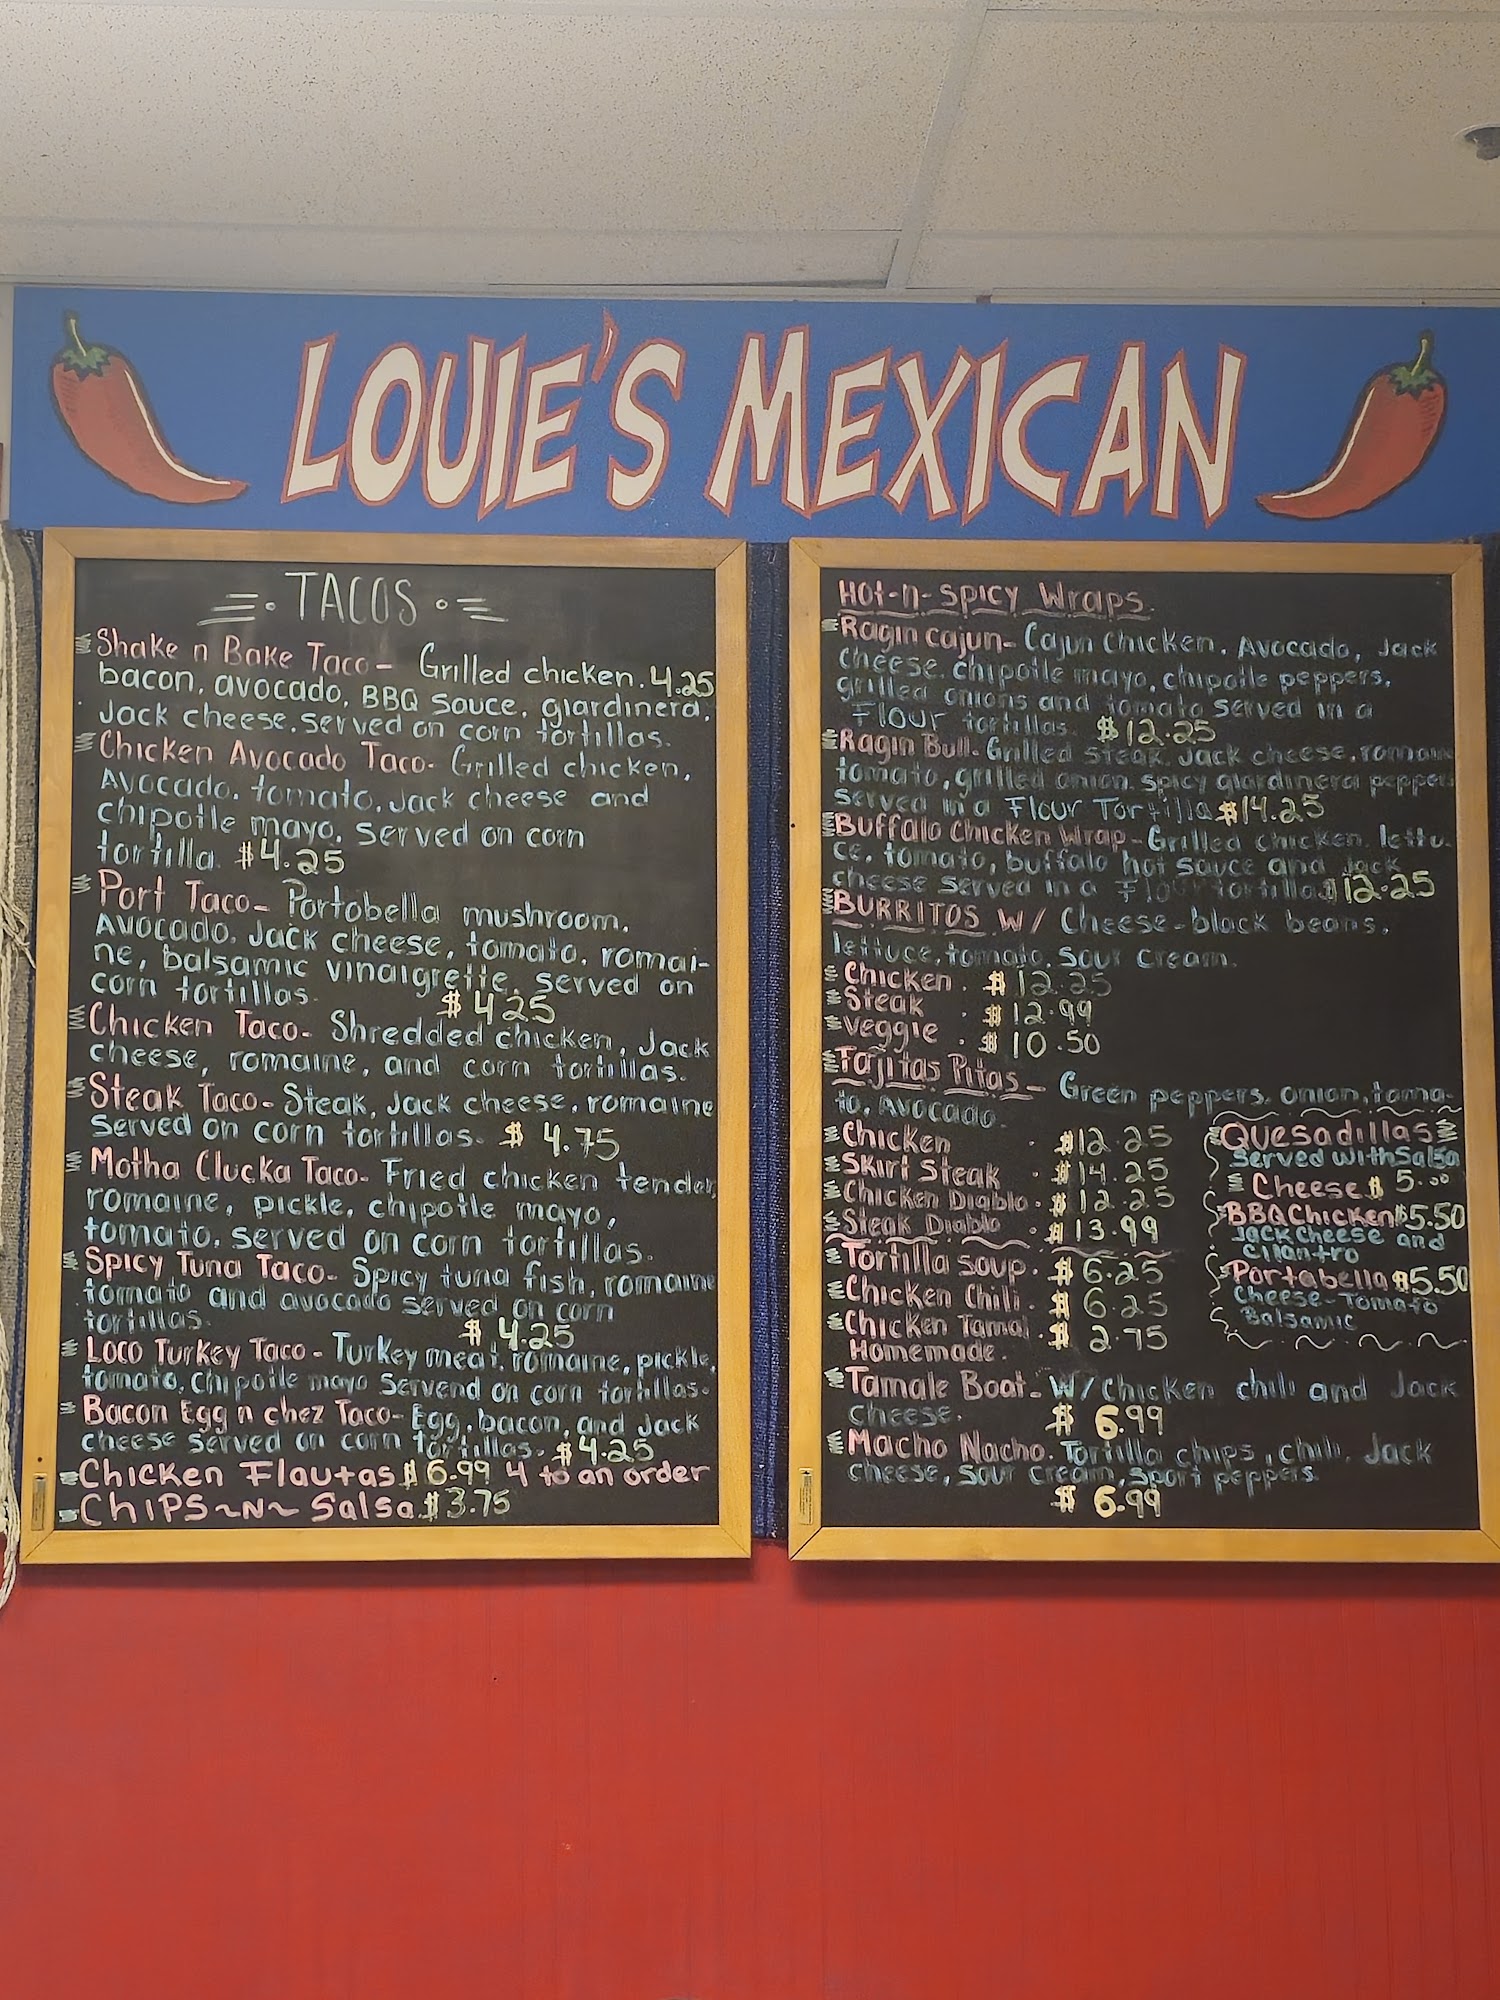 LOUIE'S MEXICAN
TACOS
Shake n Bake Taco - Grilled chicken. 4.25
bacon, avocado, BBQ sauce, giardinera,
Jack cheese, served on corn tortillas.
Chicken Avocado Taco- Grilled chicken,
Avocado, tomato, Jack cheese and
chipotle mayo, served on corn
tortilla. $4.25
Port Taco- Portobella mushroom,
Avocado, Jack cheese, tomato, romai-
ne, balsamic vinaigrette, served on
corn tortillas. $4.25
Chicken Taco- Shredded chicken, Jack
cheese, romaine, and corn tortillas.
Steak Taco- Steak, Jack cheese, romaine
served on corn tortillas. $ 4.75
Motha Clucka Taco- Fried chicken tender,
romaine, pickle, chipotle mayo,
tomato, served on corn tortillas.
Spicy Tuna Taco- Spicy tuna fish, romaine
tomato and avocado served on corn
tortillas. $ 4.25
Loco Turkey Taco - Turkey meat, romaine, pickle,
tomato, chipotle mayo Servend on corn tortillas.
Bacon Egg n chez Taco- Egg, bacon, and Jack
cheese served on corn tortillas. $4.25
Chicken Flautas $6.99 4 to an order
CHIPS~N~ Salsa $3.75
Hot-n-Spicy Wraps
Ragin cajun- Cajun Chicken, Avocado, Jack
cheese, chipotle mayo, chipotle peppers,
grilled onions and tomato served in a
Flour tortillas. $12.25
Ragin Bull- Grilled steak, Jack cheese, romaine
tomato, grilled onion, spicy giardinera pepper
served in a Flour Tortilla $14.25
Buffalo Chicken Wrap- Grilled chicken, lettu-
ce, tomato, buffalo hot sauce and Jack
cheese served in a Flour tortilla $12.25
BURRITOS W/ Cheese-black beans,
lettuce, tomato, sour cream.
Chicken. $ 12.25
Steak . $ 12.99
Veggie . $ 10.50
Fajitas Pitas- Green peppers, onion, toma-
to, Avocado.
Chicken . $12.25
Skirt Steak . $14.25
Chicken Diablo. $12.25
Steak Diablo . $13.99
Tortilla soup. $ 6.25
Chicken Chili. $ 6.25
Chicken Tamal. $ 2.75
Homemade.
Quesadillas
Served with Salsa
Cheese $ 5.00
BBQ Chicken $5.50
Jack cheese and
cilantro
Portabella $5.50
Cheese-Tomato
Balsamic
Tamale Boat- W/Chicken chili and Jack
cheese. $ 6.99
Macho Nacho. Tortilla chips, chili, Jack
cheese, sour cream, sport peppers.
$ 6.99